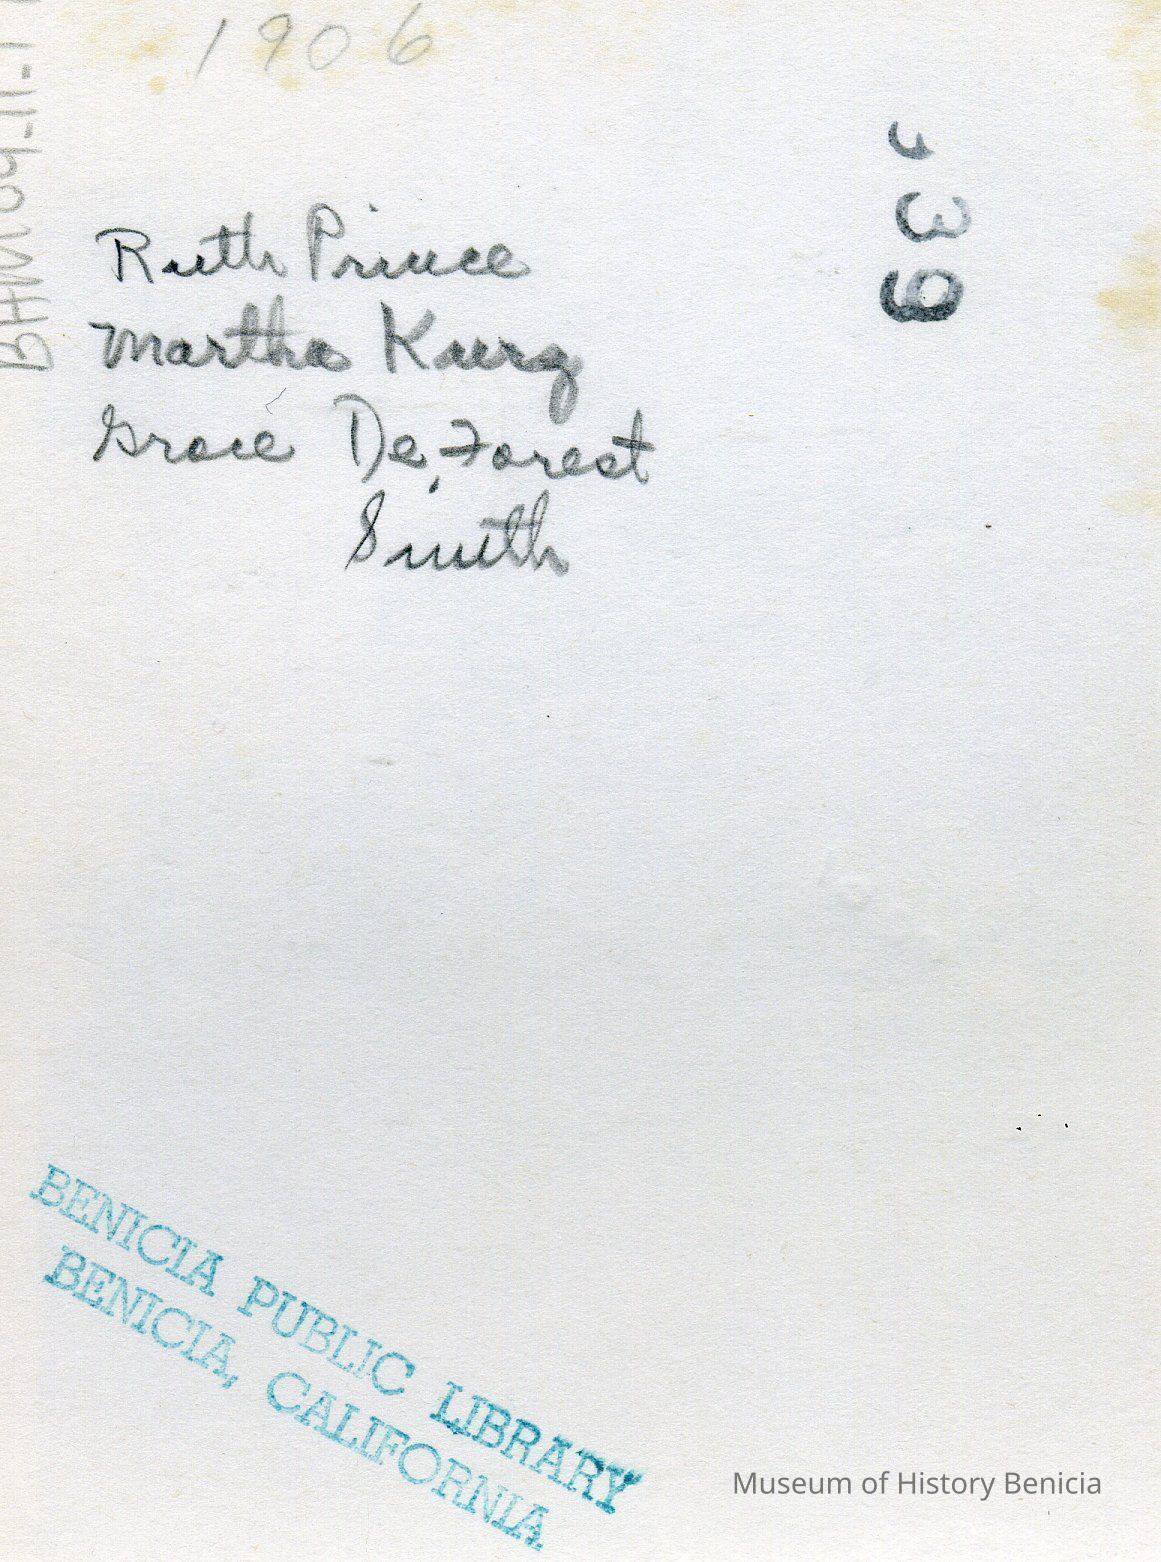 1906
Ruth Prince
Martha Kurz
Grace De Forest
Smith
BENICIA PUBLIC LIBRARY
BENICIA, CALIFORNIA
Museum of History Benicia